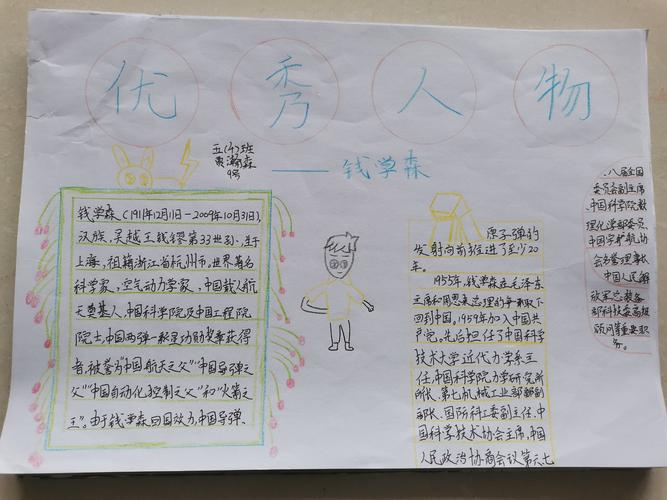 优秀人物
——钱学森
五(4)班
9号
钱学森(1911年12月11日-2009年10月31日),
汉族,吴越王钱镠第33世孙,生于
上海,祖籍浙江省杭州市。世界著名
科学家,空气动力学家,中国载人航
天奠基人,中国科学院及中国工程院
院士,中国两弹一星功勋奖章获得
者,被誉为"中国航天之父""中国导弹之
父""中国自动化控制之父"和"火箭之
王"。由于钱学森回国效力,中国导弹、
原子弹的
发射向前推进了至少20
年。
1955年,钱学森在毛泽东
主席和周恩来总理的争取下
回到中国。1959年加入中国共
产党,先后担任了中国科学
技术大学近代力学系主
任,中国科学院力学研究所
所长、第七机械工业部副部
部长、国防科工委副主任、中
国科学技术协会主席、中国
人民政治协商会议第六七
、八届全国
委员会副主席、
中国科学院数
理化学部委员、
中国宇航协
会名誉理事长、
中国人民解
放军总装备
部科技委高级
顾问等重要职
务。